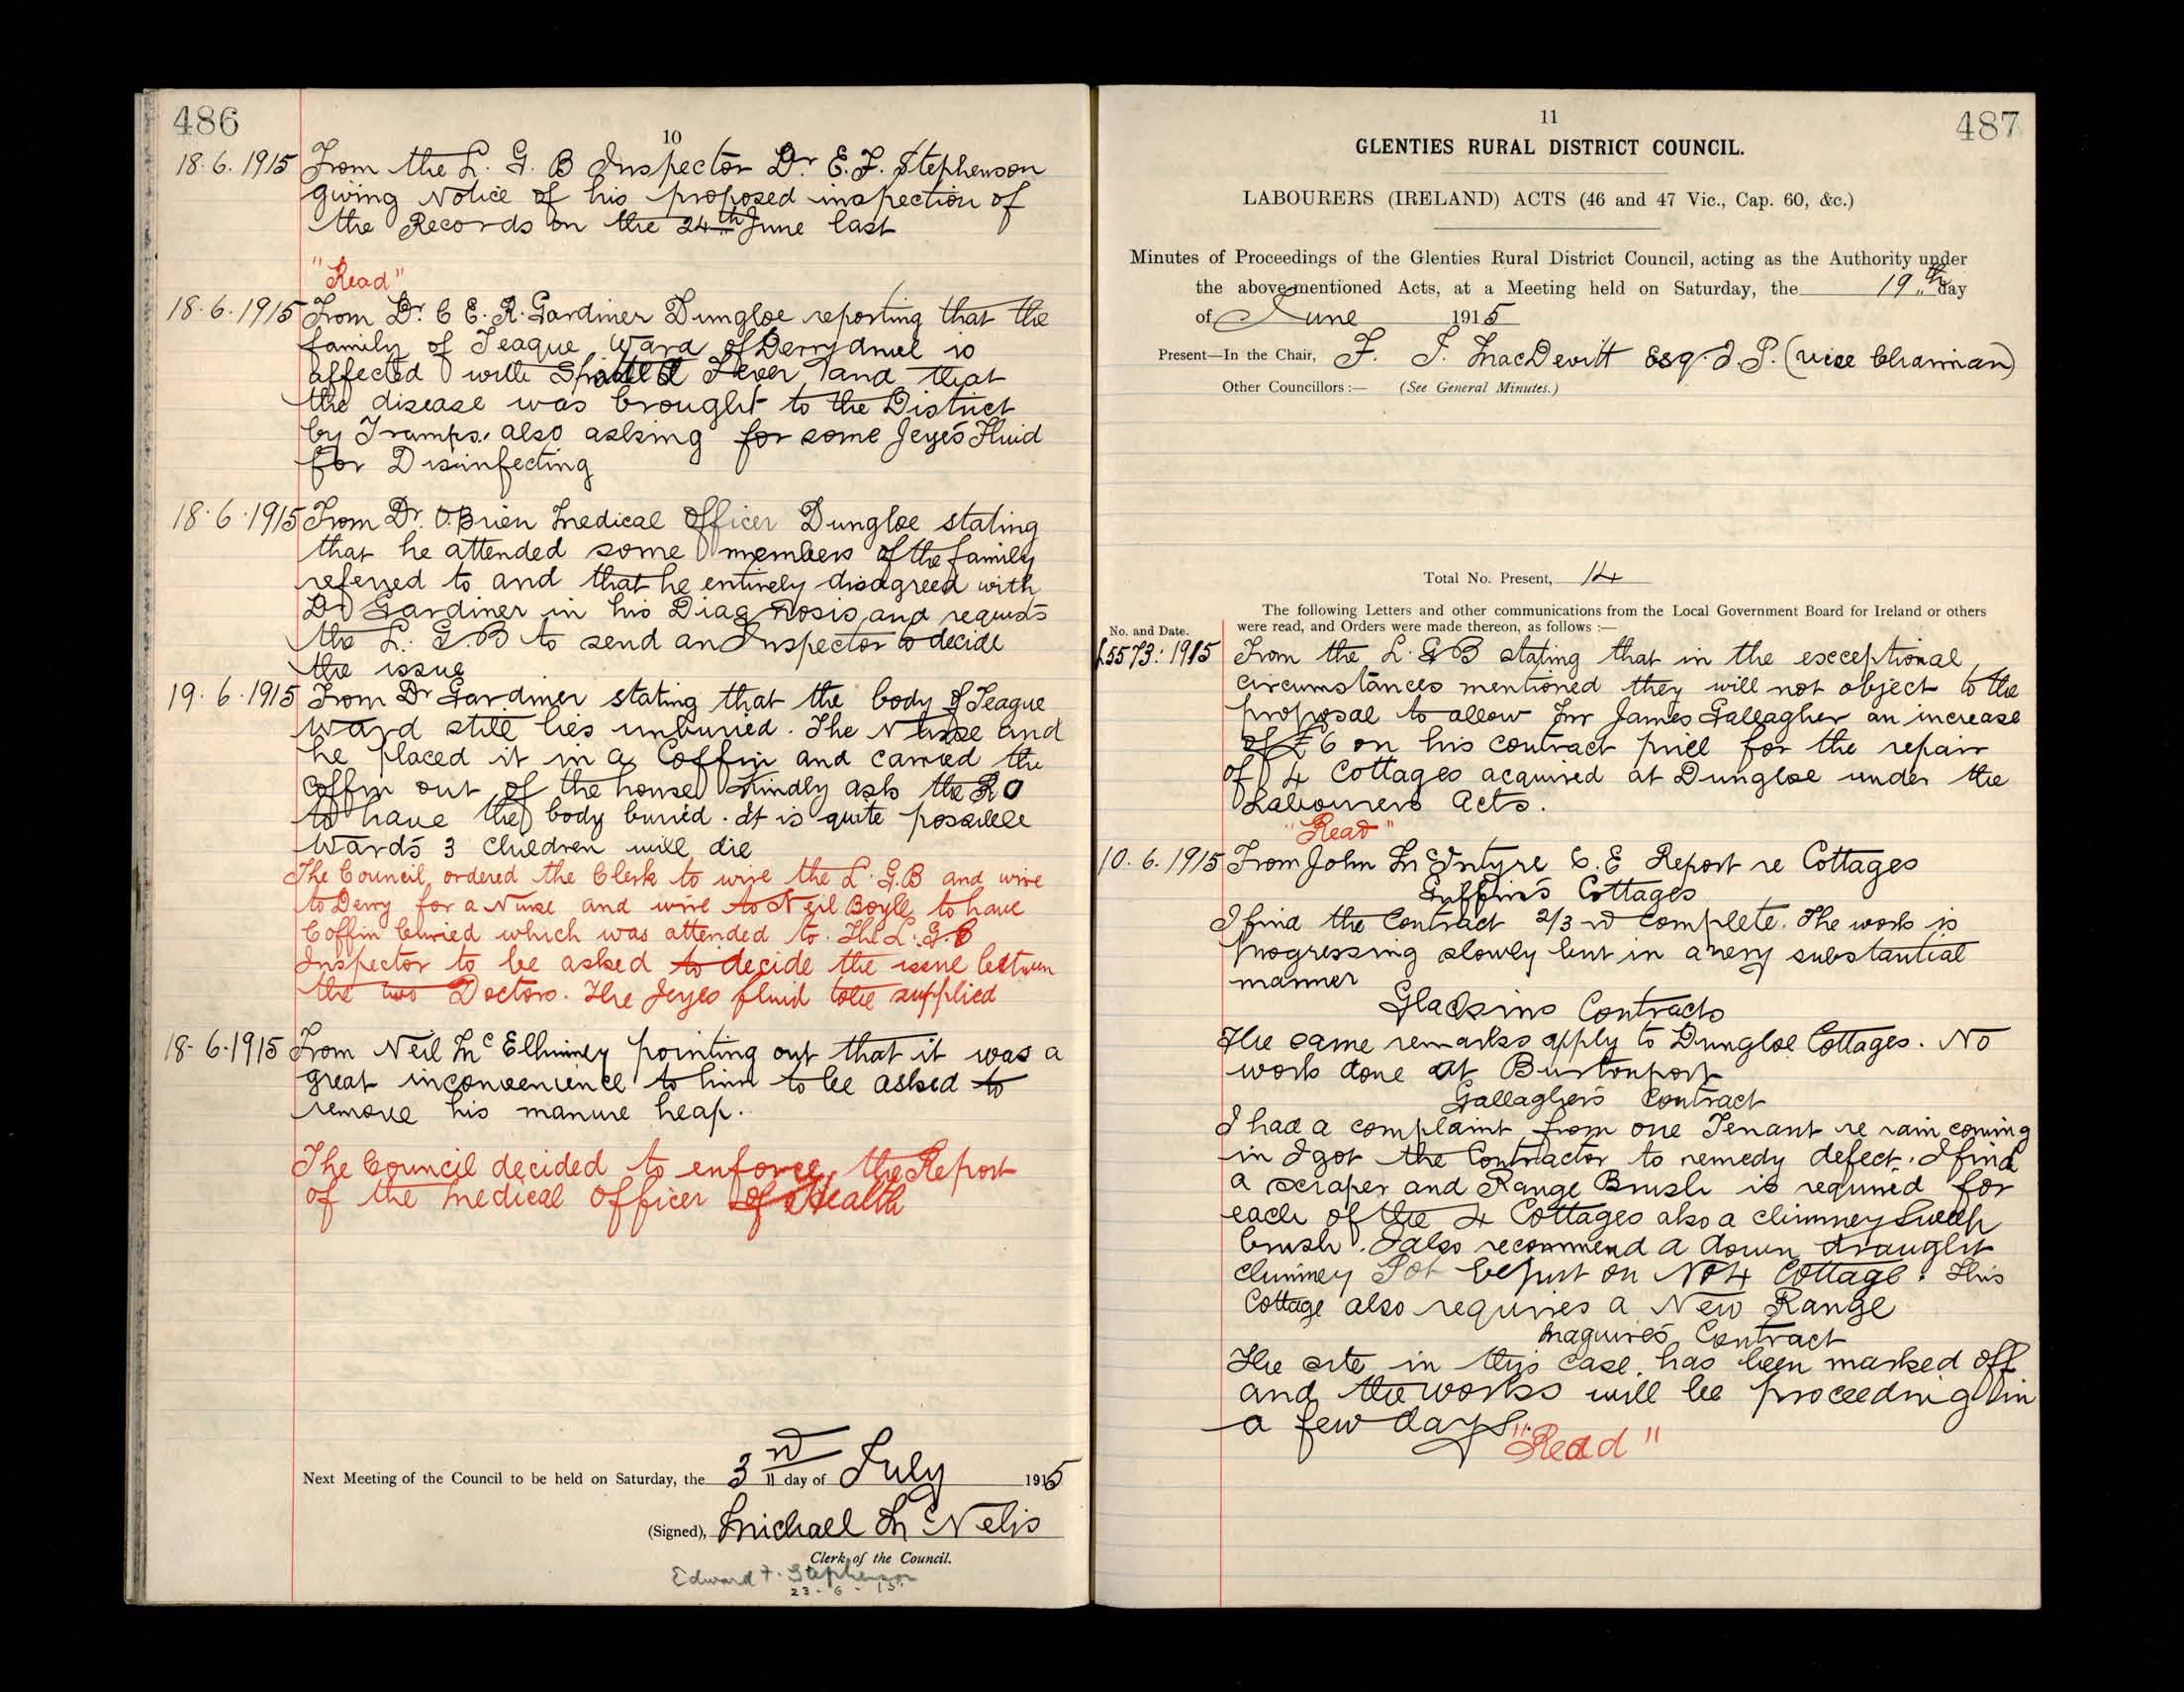 486
10
18.6.1915 From the L. G. B Inspector Dr. E. F. Stephenson
giving Notice of his proposed inspection of
the Records on the 24th June last
"Read"
18.6.1915 From Dr. C E. R. Gardiner Dungloe reporting that the
family of Teague Ward of is
affected with Fever and that
the disease was brought to the District
by Tramps. also asking for some Jeyes Fluid
for Disinfecting
18.6.1915 From Dr. O.Brien Medical Officer Dungloe stating
that he attended some members of the family
referred to and that he entirely disagreed with
Dr Gardiner in his Diagnosis, and requests
the L. G. B to send an Inspector to decide
the issue
19.6.1915 From Dr Gardiner stating that the body of Teague
Ward still lies unburied. The Nurse and
he placed it in a Coffin and carried the
Coffin out of the house Kindly ask the R O
to have the body buried. It is quite possible
Wards 3 Children will die
The Council ordered the Clerk to wire the L. G. B and wire
to Derry for a Nurse and wire to Neil Boyle to have
Coffin buried which was attended to. The L. G. B
Inspector to be asked to decide the issue between
the two Doctors. The Jeyes fluid to be supplied
18.6.1915 From Neil Mc Elhinney pointing out that it was a
great inconvenience to him to be asked to
remove his manure heap.
The Council decided to enforce the Report
of the Medical Officer of Health
Next Meeting of the Council to be held on Saturday, the 3rd day of July 1915
(Signed), Michael Mc Nelis
Clerk of the Council.
Edward F. Stephenson
23-6-15
11
487
GLENTIES RURAL DISTRICT COUNCIL.
LABOURERS (IRELAND) ACTS (46 and 47 Vic., Cap. 60, &c.)
Minutes of Proceedings of the Glenties Rural District Council, acting as the Authority under
the above-mentioned Acts, at a Meeting held on Saturday, the 19th day
of June 1915
Present—In the Chair, F. J. MacDevitt Esq. J.P. (vice Chairman)
Other Councillors:— (See General Minutes.)
Total No. Present, 14
The following Letters and other communications from the Local Government Board for Ireland or others
were read, and Orders were made thereon, as follows :—
No. and Date.
L5573: 1915 From the L. G B stating that in the exceptional
circumstances mentioned they will not object to the
proposal to allow Mr James Gallagher an increase
of £6 on his contract price for the repair
of 4 Cottages acquired at Dungloe under the
Labourers Acts.
"Read"
10.6.1915 From John Mc Entyre C.E Report re Cottages
Cottages
I find the Contract 2/3rd complete. The work is
progressing slowly but in a very substantial
manner
Glackins Contracts
The same remarks apply to Dungloe Cottages. No
work done at Burtonport
Gallaghers Contract
I had a complaint from one Tenant re rain coming
in I got the Contractor to remedy defect. I find
a scraper and Range Brush is required for
each of the 4 Cottages also a chimney Sweep
brush. I also recommend a down draught
chimney Pot be put on No 4 Cottage. This
Cottage also requires a New Range
Maguires Contract
The site in this case has been marked off
and the works will be proceeding in
a few days.
"Read"